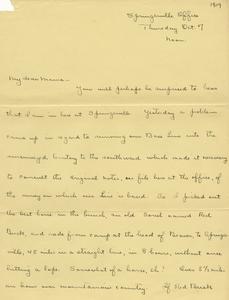 1909
Springerville Office
Thursday Oct. 7
Noon.
My dear Mama -
You will perhaps be surprised to hear
that I am in here at Springerville. Yesterday a problem
came up in regard to running our Base Line into the
unsurveyed country to the southward which made it necessary
to consult the original notes, on file here at the office, of
the survey on which our Line is based. So I picked out
the best horse in the bunch, an old Sorrel named Red
Buck, and rode from camp at the head of to Springer-
ville, 45 miles in a straight line, in 8 hours, without once
hitting a lope. Somewhat of a horse, eh? Over 5½ miles
an hour over mountainous country. If Red Buck